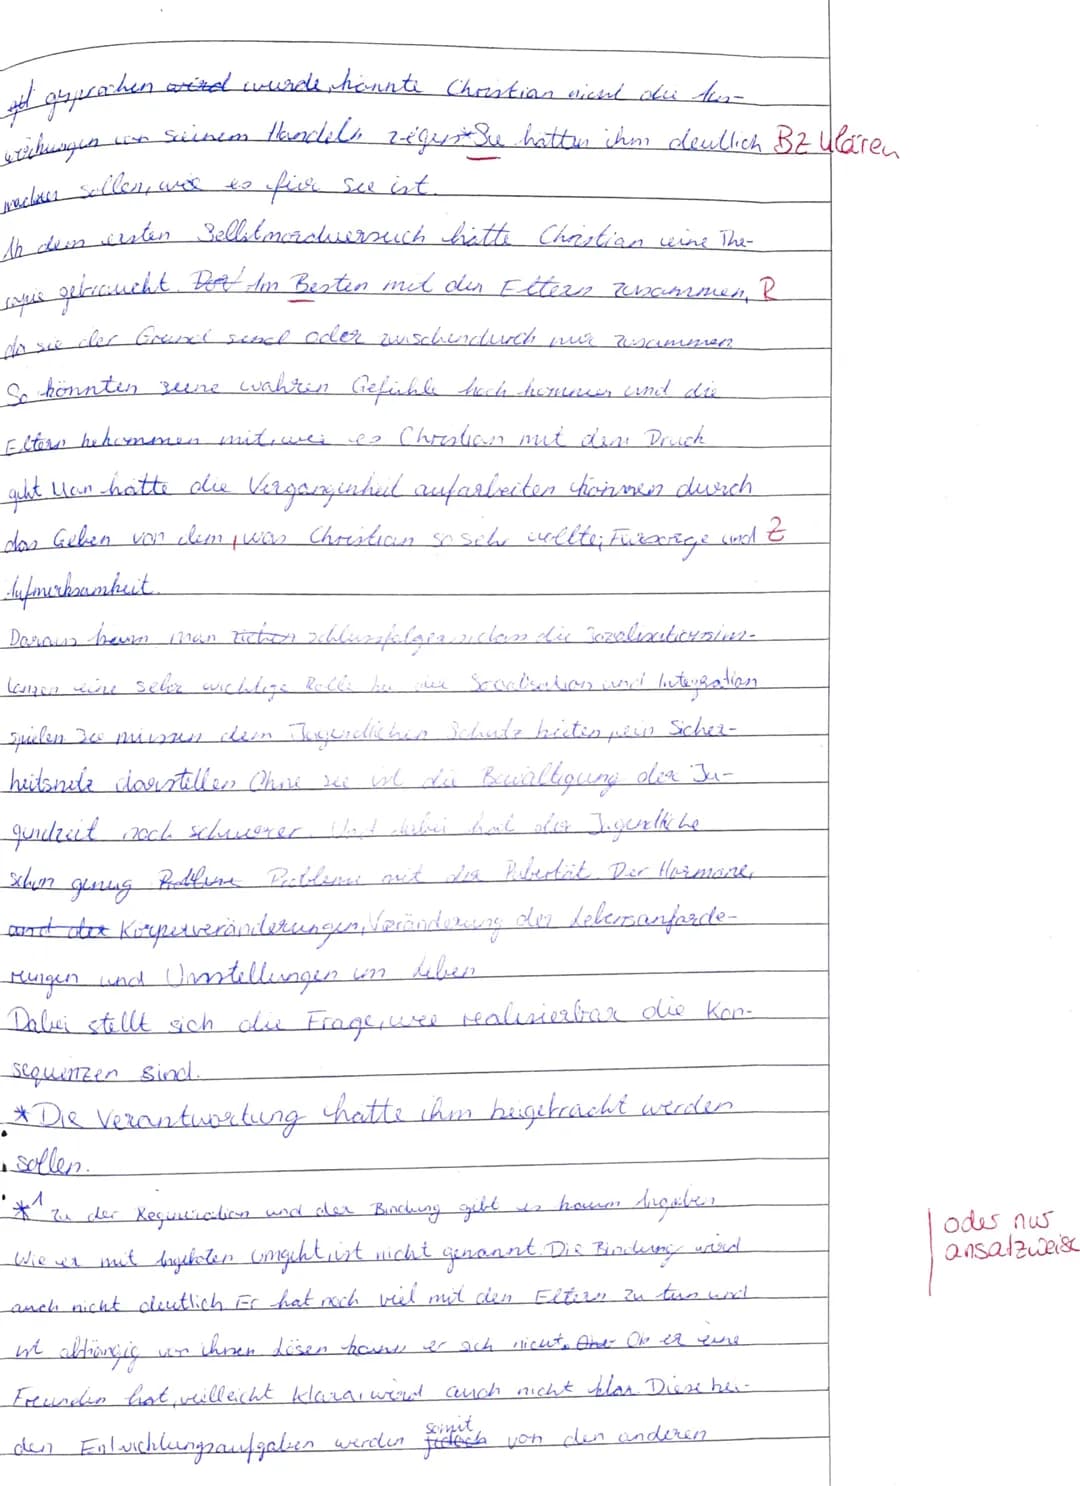 gesprochen wird wurde, konnte Christian nicht die Aus-
wirkungen von seinem Handeln zeigen.* Sie hätten ihm deutlich BZ klären
machen sollen, wie es für sie ist.
Ab dem ersten Selbstmordversuch hätte Christian eine The-
rapie gebraucht. Am Besten mit den Eltern zusammen, R
da sie der Grund sind oder zwischendurch nur zusammen
So könnten seine wahren Gefühle hoch kommen und die
Eltern bekommen mit, wie es Christian mit dem Druck
geht Man hätte die Vergangenheit aufarbeiten können durch
das Geben von dem, was Christian so sehr wollte; Fürsorge und Z
Aufmerksamkeit.
Daraus kann man ziehen schlussfolgern, dass die Sozialisationsins-
tanzen eine sehr wichtige Rolle in der Sozialisation und Integration
spielen Sie müssen dem Jugendlichen Schutz bieten, ein Sicher-
heitsnetz darstellen Ohne sie ist die Bewältigung der Ju-
gendzeit noch schwerer. Und dabei hat der Jugendliche
schon genug Probleme Probleme mit der Pubertät. Der Hormone,
und der Körperveränderungen, Veränderung der Lebensanforde-
rungen und Umstellungen im Leben
Dabei stellt sich die Frage, wie realisierbar die Kon-
sequenzen sind.
* Die Verantwortung hätte ihm beigebracht werden
sollen.
*1 Zu der Regeneration und der Bindung gibt es kaum Angaben
oder nur
Wie er mit Angeboten umgeht, ist nicht genannt. Die Bindung wird
ansatzweise
auch nicht deutlich Er hat noch viel mit den Eltern zu tun und
ist abhängig von ihnen lösen kann er sich nicht. Ob er eine
Freundin hat, vielleicht Klara, wird auch nicht klar. Diese bei-
den Entwicklungsaufgaben werden jedoch somit von den anderen